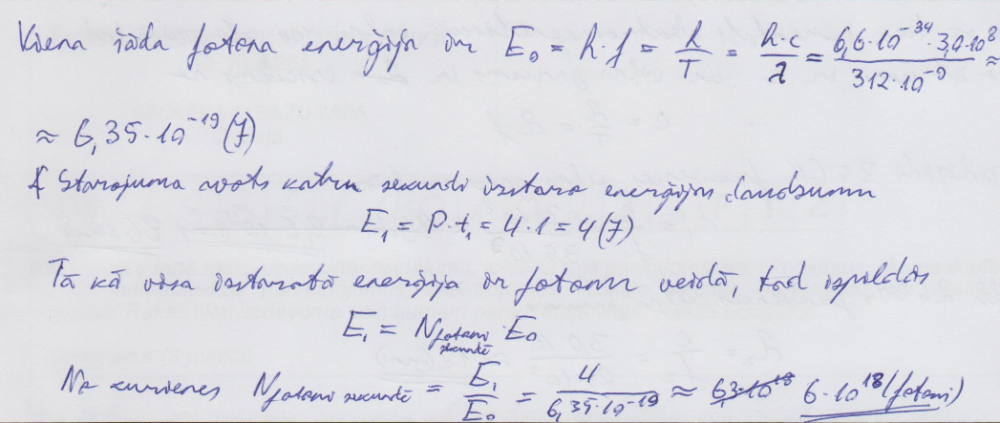 Viena šāda fotona enerģija ir E₀ = h·f = h/T = h·c/λ = 6,6·10⁻³⁴·3,0·10⁸/312·10⁻⁹ ≈
≈ 6,35·10⁻¹⁹ (J)
Starojuma avots katru sekundi izstaro enerģijas daudzumu
E₁ = P·t₁ = 4·1 = 4 (J)
Tā kā visa izstarotā enerģija ir fotonu veidā, tad izpildās
E₁ = N fotoni sekundē · E₀
No kurienes N fotoni sekundē = E₁/E₀ = 4/6,35·10⁻¹⁹ ≈ 6·10¹⁸ (fotoni)